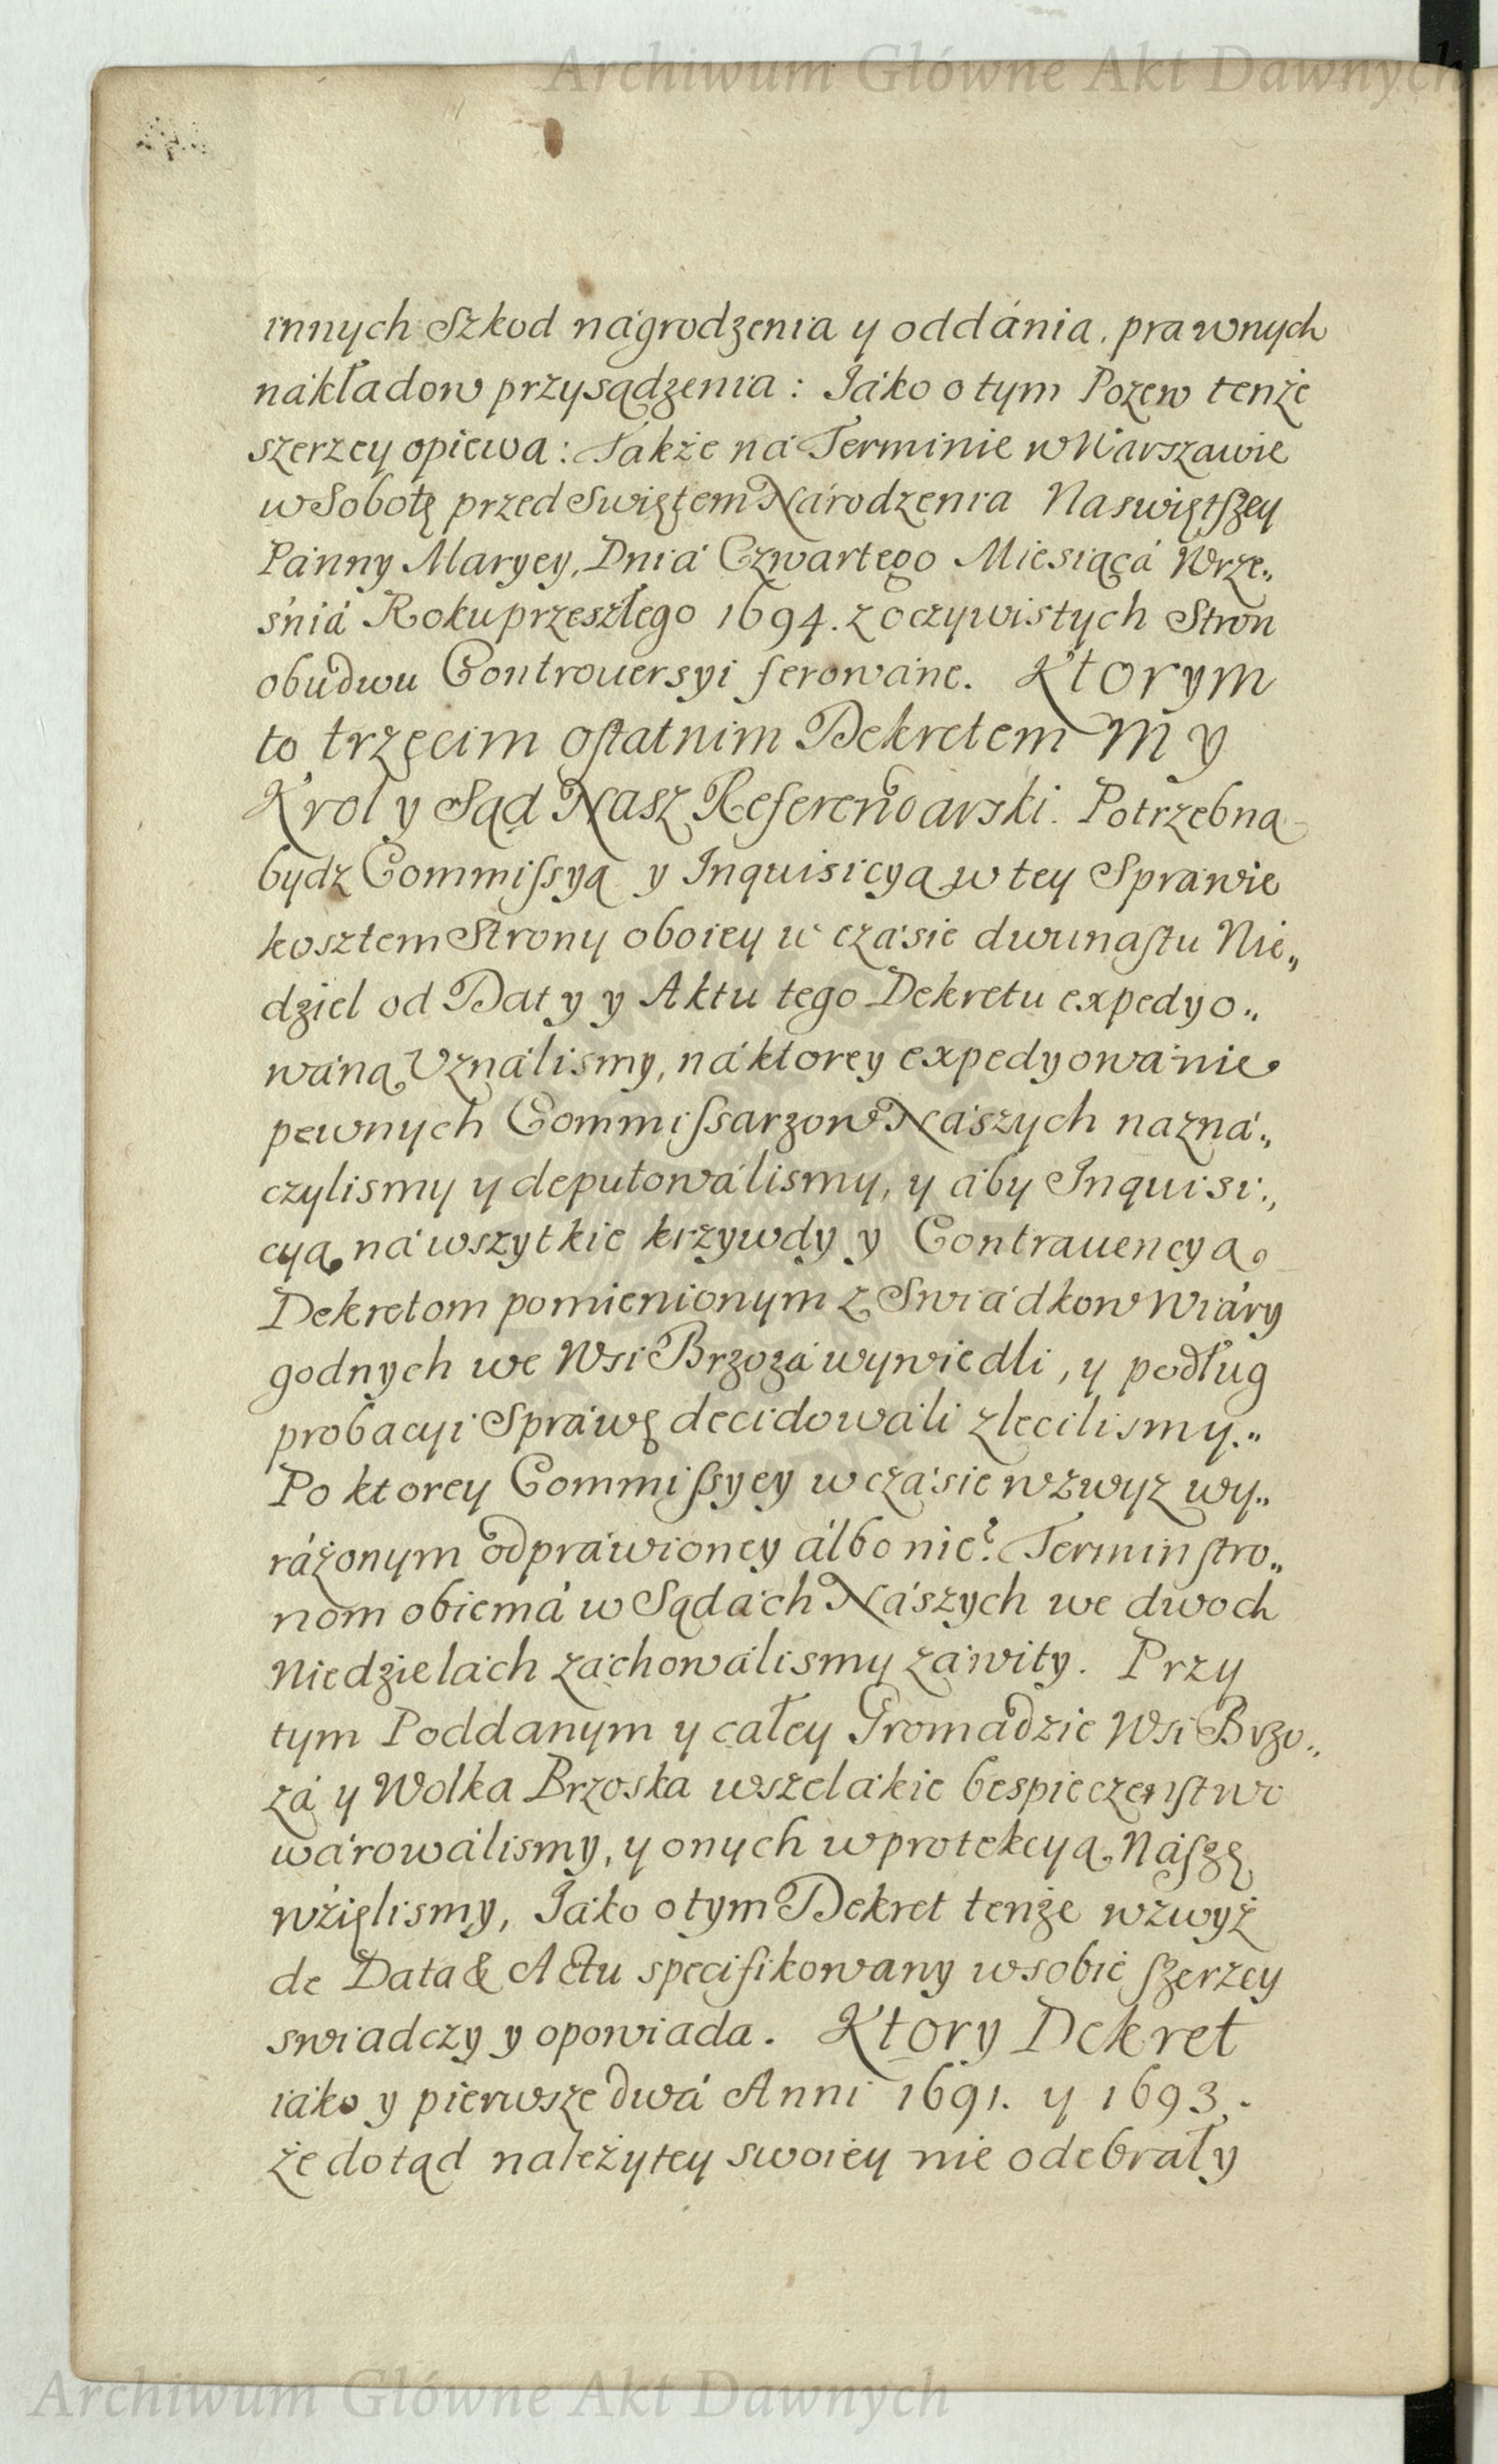 Archiwum Główne Akt Dawnych
innych Szkod nágrodzenia y oddánia, prawnych
nákładow przysądzenia: Jáko o tym Pozew tenże
szerzey opiewa: Tákże ná Terminie w Wárszawie
w Sobotę przed Swiętem Národzenia Naswiętszey
Pánny Maryey, Dniá Czwartego Miesiącá Wrze„
śniá Roku przeszłego 1694. z oczywistych Stron
obudwu Controuersyi ferowáne. Ktorym
to trzecim ostatnim Dekretem My
Krol y Sąd Nasz Referendarski. Potrzebną
bydz Commissyą y Inquisicyą w tey Spráwie
kosztem Strony oboiey w czásie dwunastu Nie„
dziel od Daty y Aktu tego Dekretu expedyo„
wáną Uználismy, ná ktorey expedyowánie
pewnych Commissarzow Nászych nazná„
czylismy y deputowálismy, y áby Inquisi„
cyą ná wszytkie krzywdy y Contrauencyą
Dekretom pomienionym z Swiádkow Wiáry
godnych we Wsi Brzozá wywiedli, y podług
probacyi Spráwę decidowáli zlecilismy.„
Po ktorey Commissyey w czásie wzwyz wy„
ráżonym odpráwioney álbo nie? Termin stro„
nom obiemá w Sądách Nászych we dwoch
Niedzielách záchowálismy záwity. Przy
tym Poddanym y całey Gromádzie Wsi Brzo„
zá y Wolka Brzoska wszelákie bespieczenstwo
wárowálismy, y onych w protekcyą Nászę
wźięlismy, Jáko o tym Dekret tenże wzwyż
de Data & Actu specifikowany w sobie szerzey
swiadczy y opowiada. Ktory Dekret
iáko y pierwsze dwá Anni 1691. y 1693.
że dotąd należytey swoiey nie odebrały
Archiwum Główne Akt Dawnych